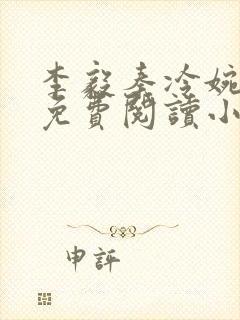 李毅秦冷婉
免費閱讀小
申評